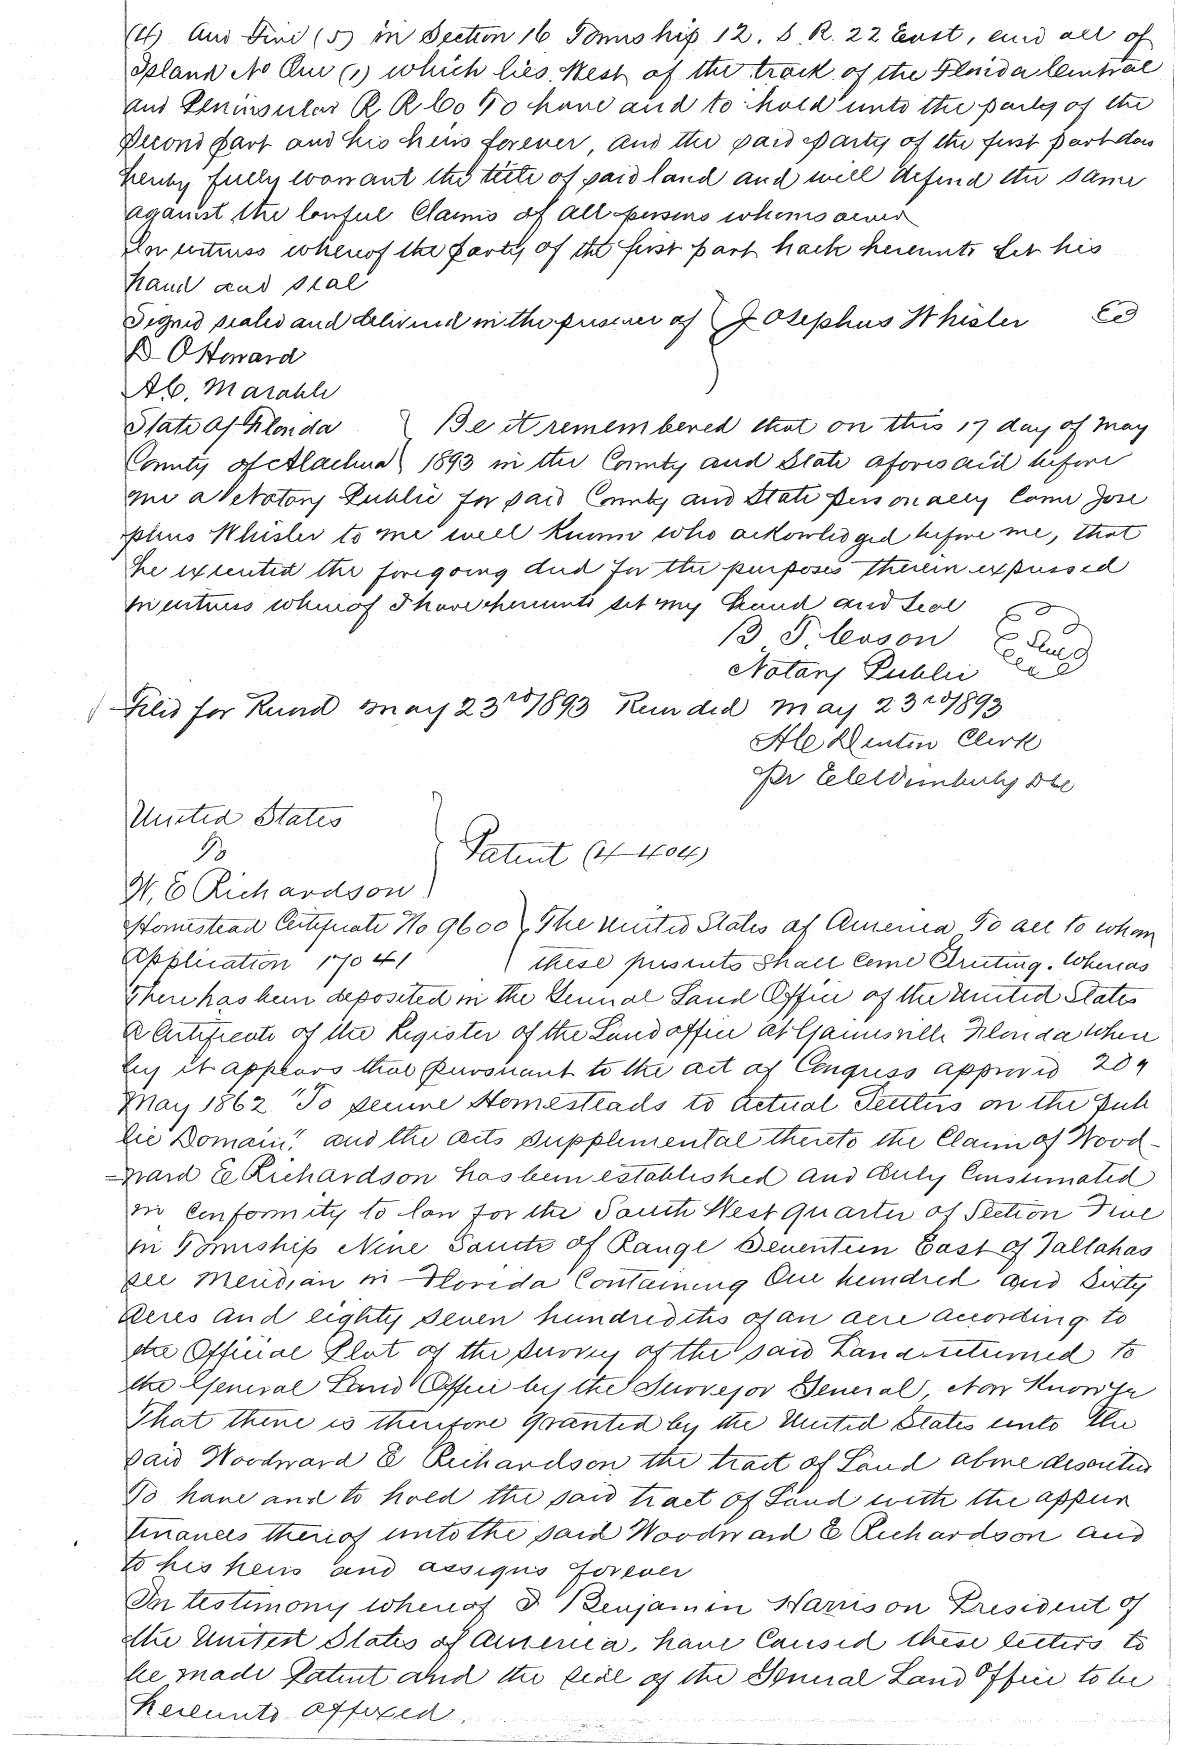 (4) and Five (5) in Section 16 Township 12. S. R. 22 East, and all of
Island No One (1) which lies West of the track of the Florida Central
and Peninsular R R Co To have and to hold unto the party of the
Second part and his heirs forever, and the said party of the first part does
hereby fully warrant the title of said land and will defend the same
against the lawful Claims of all persons whomsoever
In witness whereof the party of the first part hath hereunto set his
hand and seal
Signed sealed and delivered in the presence of } Josephus Whisler
D O Howard
State of Florida } Be it remembered that on this 17 day of May
County of Alachua } 1893 in the County and State aforesaid before
me a Notary Public for said County and State personally Came Jose
phus Whisler to me well Known who acknowledged before me, that
he executed the foregoing deed for the purposes therein expressed
In witness whereof I have hereunto set my hand and seal
B. F. Seal
Notary Public
Filed for Record May 23rd 1893 Recorded May 23rd 1893
Denton Clerk
pr Wimberly
United States
To
W. E Richardson } Patent (4-404)
Homestead Certificate No 9600 } The United States of America, To all to whom
Application 17041 } these presents shall Come Greeting. Whereas
There has been deposited in the General Land Office of the United States
a Certificate of the Register of the Land office at Gainesville Florida where
by it appears that pursuant to the act of Congress approved 20th
May 1862 "To secure Homesteads to actual Settlers on the Pub
lic Domain", and the acts supplemental thereto the Claim of Wood-
=ward E Richardson has been established and duly Consumated
in Conformity to law for the South West quarter of Section Five
in Township Nine South of Range Seventeen East of Tallahas
see Meridian in Florida Containing One hundred and Sixty
acres and eighty seven hundredths of an acre according to
the Official Plat of the survey of the said Land returned to
the General Land Office by the Surveyor General, Now Know Ye
That there is therefore granted by the United States unto the
said Woodward E Richardson the tract of Land above described
To have and to hold the said tract of Land with the appur
tenances thereof unto the said Woodward E Richardson and
to his heirs and assigns forever
In testimony whereof I Benjamin Harrison President of
the United States of America, have Caused these letters to
be made Patent and the seal of the General Land Office to be
hereunto affixed.